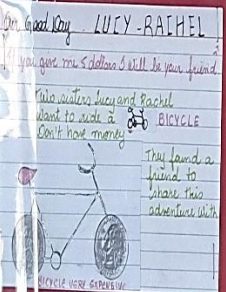 Good Day LUCY-RACHEL
If you give me 5 dollars I will be your friend
Two sisters Lucy and Rachel
want to ride a BICYCLE
Don't have money
They found a
friend to
share this
adventure with
BICYCLE VERY EXPENSIVE